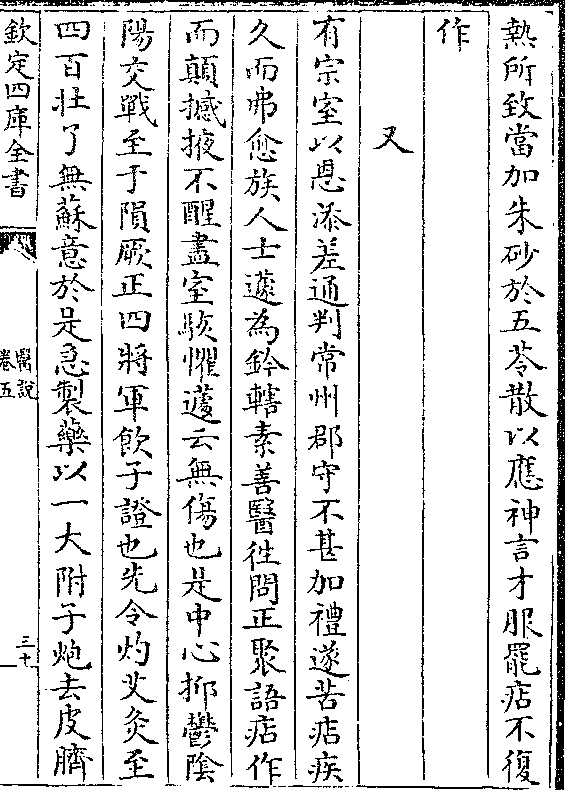 熱所致當加朱砂於五苓散以應神言才服罷痁不復
作
又
有宗室以恩添差通判常州郡守不甚加禮遂苦痁疾
久而弗愈族人士蘧為鈐轄素善醫徃問正聚語痁作
而顛撼掖不醒盡室駭懼蘧云無傷也是中心抑鬱陰
陽交戰至于隕厥正四將軍飲子證也先令灼艾灸至
四百壯了無蘇意於是急製藥以一大附子炮去皮臍
欽定四庫全書
醫説
卷五
三十